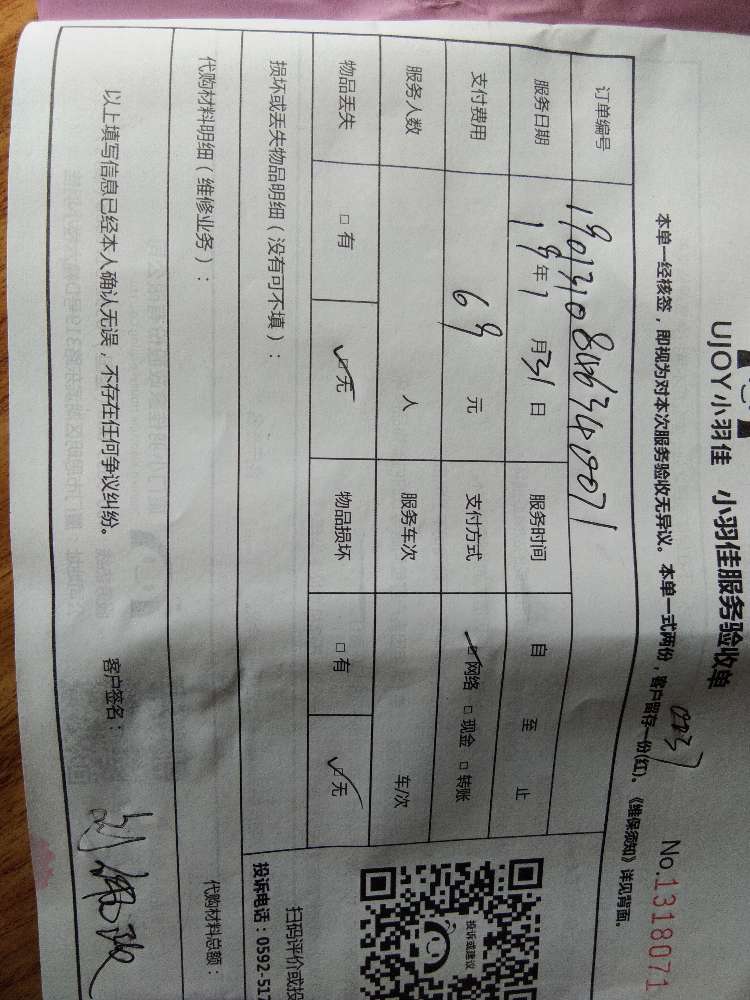 UJOY小羽佳 小羽佳服务验收单
No.1318071
本单一经核签，即视为对本次服务验收无异议。本单一式两份，客户留存一份(红)。《维保须知》详见背面。
订单编号
服务日期 19年1月31日 服务时间 自 至 止
支付费用 69 元 支付方式 ☑网络 □现金 □转账
服务人数 人 服务车次 车/次
物品丢失 □有 ☑无 物品损坏 □有 ☑无
损坏或丢失物品明细（没有可不填）：
投诉或建议
扫码评价或投
投诉电话：0592-517
代购材料明细（维修业务）： 代购材料总额：
以上填写信息已经本人确认无误，不存在任何争议纠纷。 客户签名：